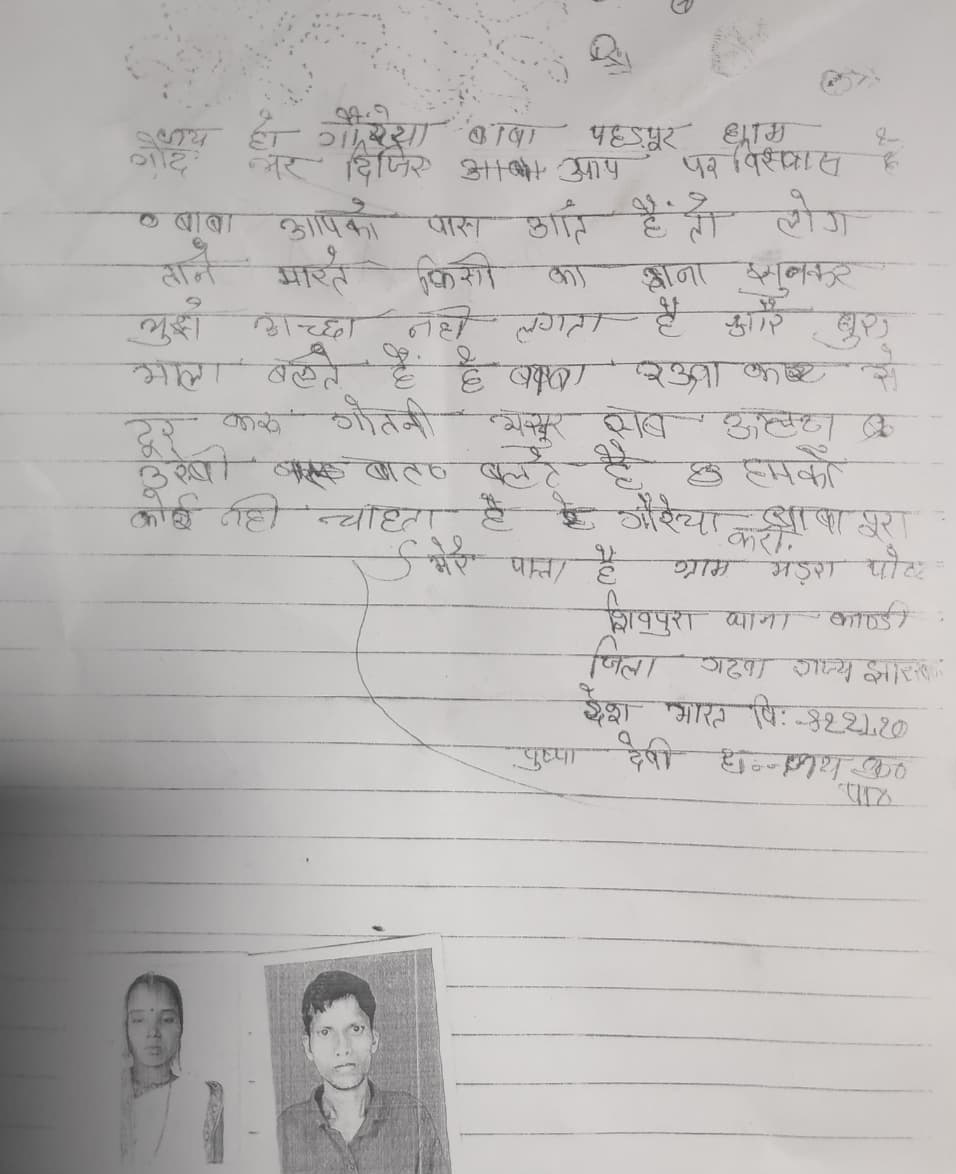 जय हो गौरेया बाबा पहड़पूर धाम
गोद भर दिजिए बाबा आप पर विश्वास है
बाबा आपके पास आते हैं तो लोग
ताने मारते किसी का ताना सुनकर
मुझे अच्छा नही लगता है और बुरा
भला बलते हैं हे बाबा रऊवा कष्ट से
दूर करू गोतनी भसुर सब उल्टा
बात बलते है हमको
कोई नही चाहता है हे गौरेया बाबा पूरा
करो.
मेरे पाता है ग्राम मड़रा पोस्ट
शिवपुरा थाना काण्डी
जिला गढवा राज्य झारख
देश भारत पि:-
पुष्पा देवी
पाल